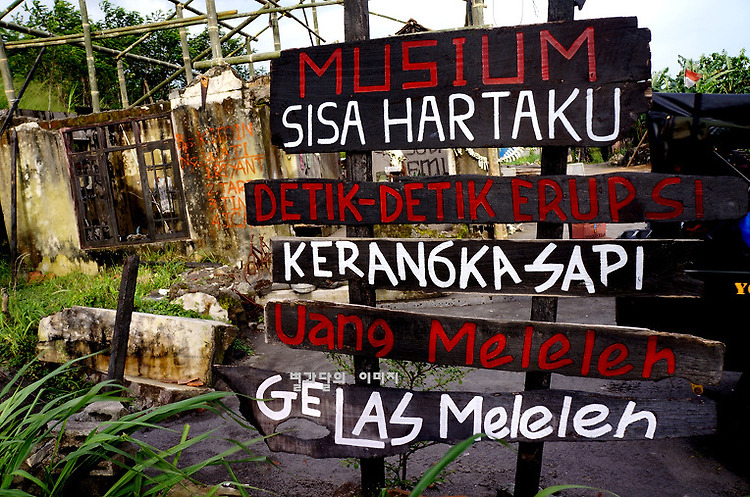 MUSIUM
SISA HARTAKU
DETIK-DETIK ERUPSI
KERANGKA-SAPI
Uang Meleleh
GELAS Meleleh
별가달의 이미지